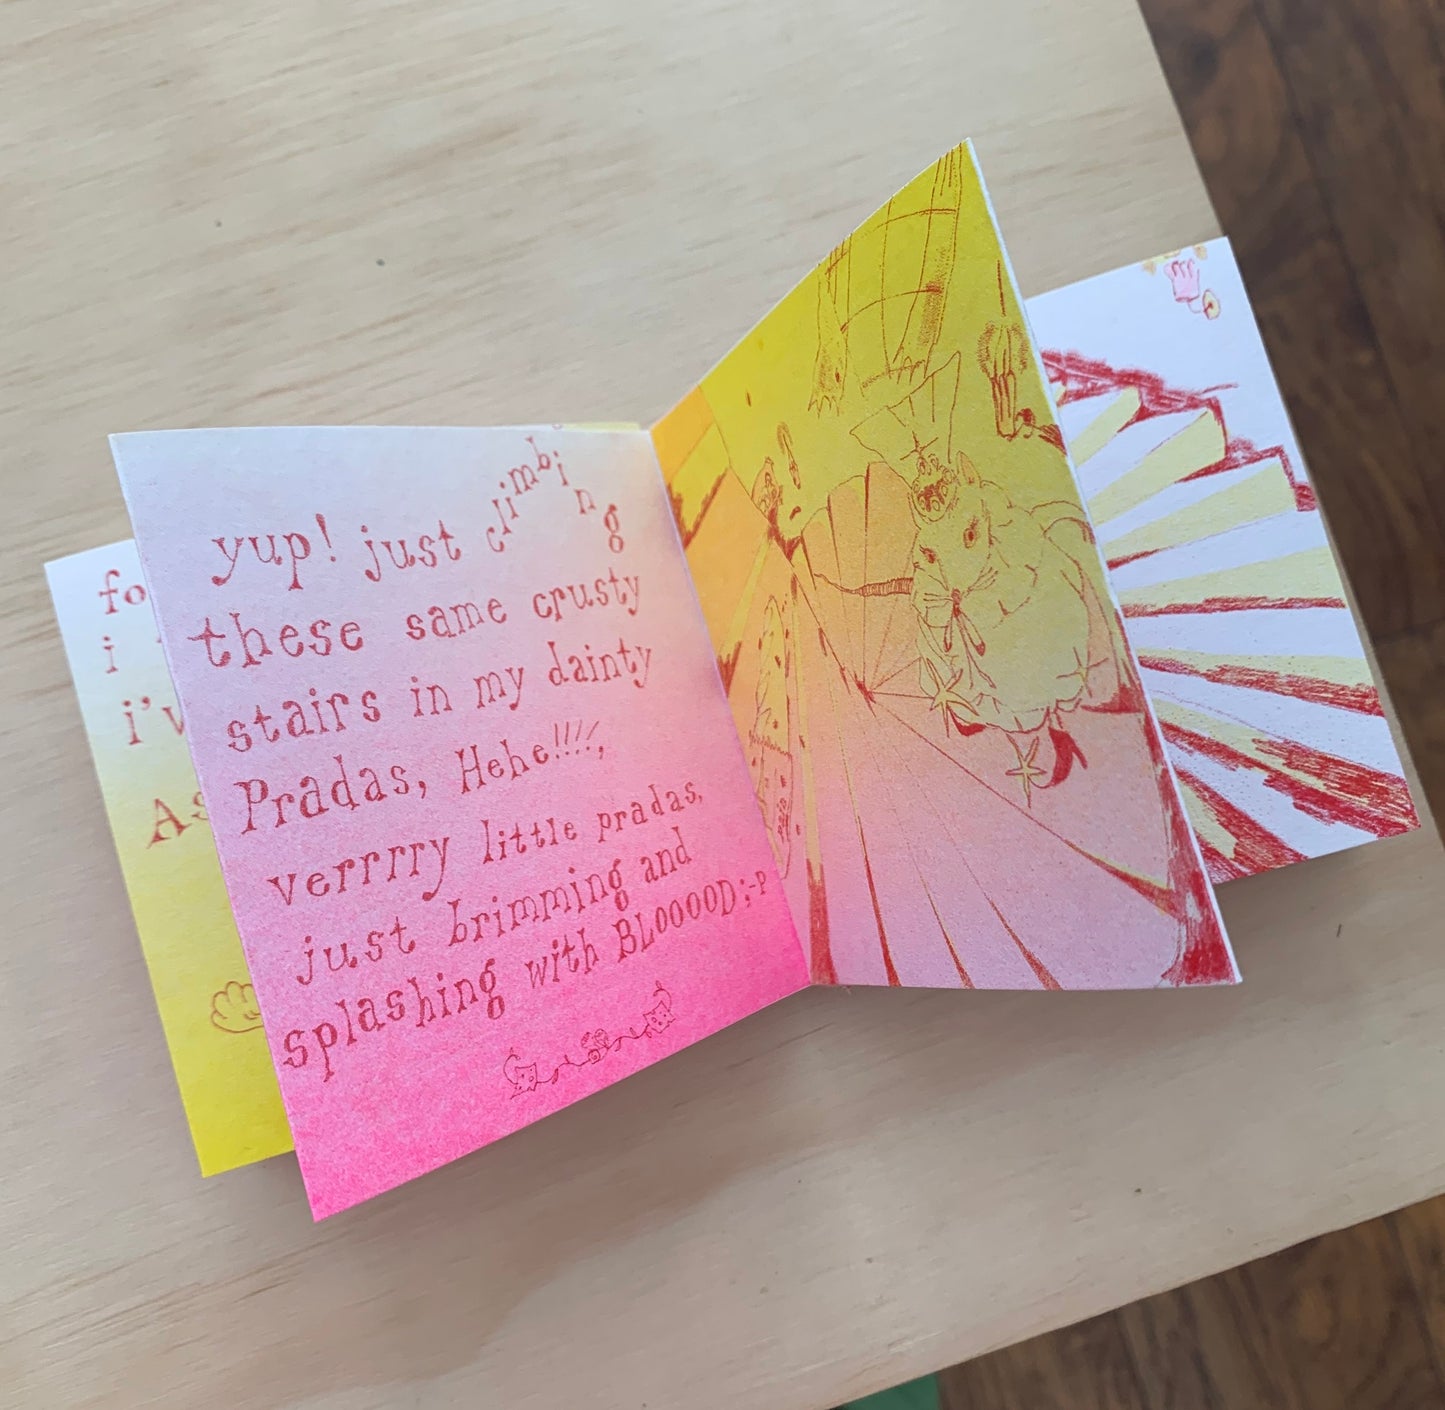 fo
i
i'v
As
yup! just climbing
these same crusty
stairs in my dainty
Pradas, Hehe!!!!,
verrrry little pradas,
just brimming and
splashing with BLOOOOD;-P